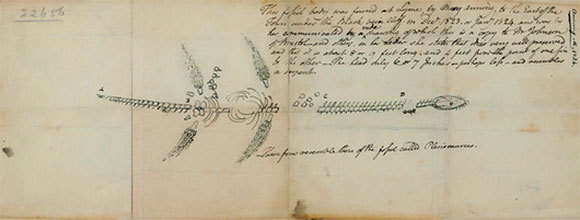 22656
This fossil body was found at Lyme, by Mary Anning, to the East of the
Town under the Black ven Cliff, in Decr 1823, or Jany 1824, and was by
her communicated by a drawing of which this is a copy to Dr Johnson
rude
of Bristol and other, in her letter she states that it is very well preserved
and that it is about 8 or 9 feet long, and 4 feet from the point of one fin
to the other — The head only 6 or 7 Inches — perhaps less — and resembles
a serpent.
A
B
C
D
These fins resemble those of the fossil called Plesiosaurus.